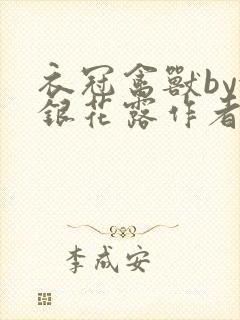 衣冠禽獸by
銀花露作者
李成安